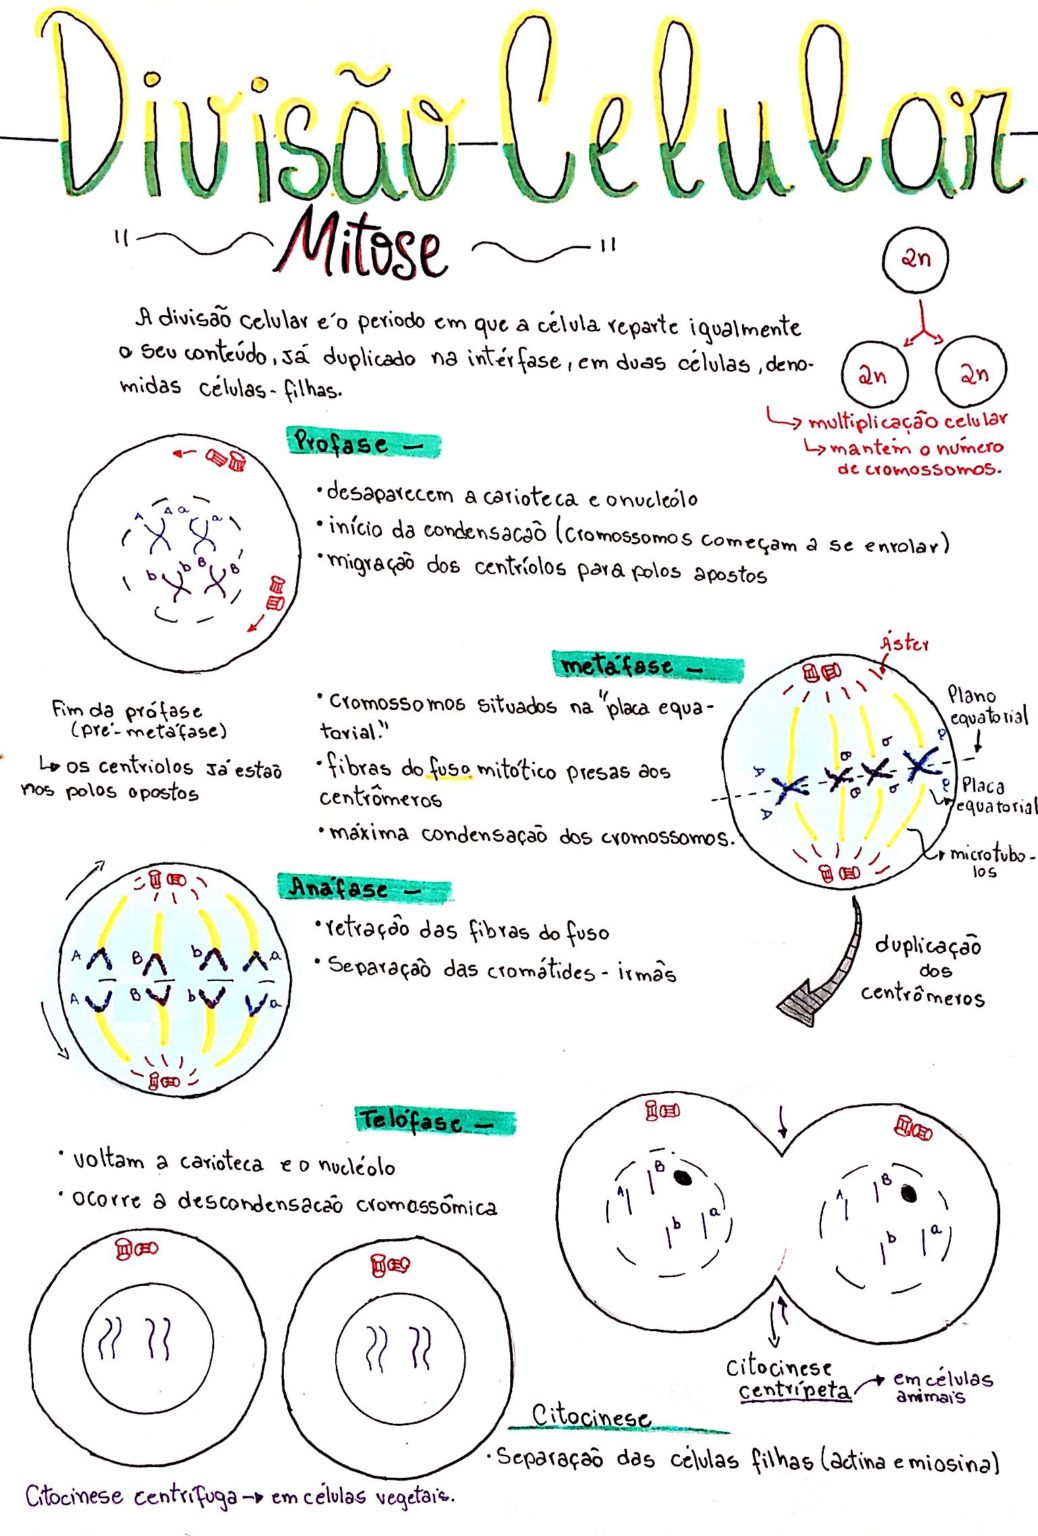 Divisão Celular
" Mitose "
2n
A divisão celular é o periodo em que a célula reparte igualmente
o seu conteúdo, já duplicado na intérfase, em duas células, deno-
midas células-filhas.
2n 2n
multiplicação celular
mantém o número
de cromossomos.
Prófase -
•desaparecem a carioteca e o nucléolo
•início da condensação (cromossomos começam a se enrolar)
•migração dos centríolos para polos apostos
A A a a
b b B B
Fim da prófase
(pré-metáfase)
os centriolos já estão
nos polos opostos
metáfase -
•Cromossomos situados na "placa equa-
torial."
•fibras do fuso mitótico presas aos
centrômeros
•máxima condensação dos cromossomos.
Áster
Plano
equatorial
Placa
equatorial
microtubo-
los
A
A
duplicação
dos
centrômeros
Anáfase -
•retração das fibras do fuso
•Separação das cromátides-irmãs
A B b a
A B b a
Telófase -
•voltam a carioteca e o nucléolo
•ocorre a descondensação cromossômica
A B b a
A B b a
Citocinese
centrípeta
em células
animais
Citocinese
•Separação das células filhas (actina e miosina)
Citocinese centrífuga → em células vegetais.